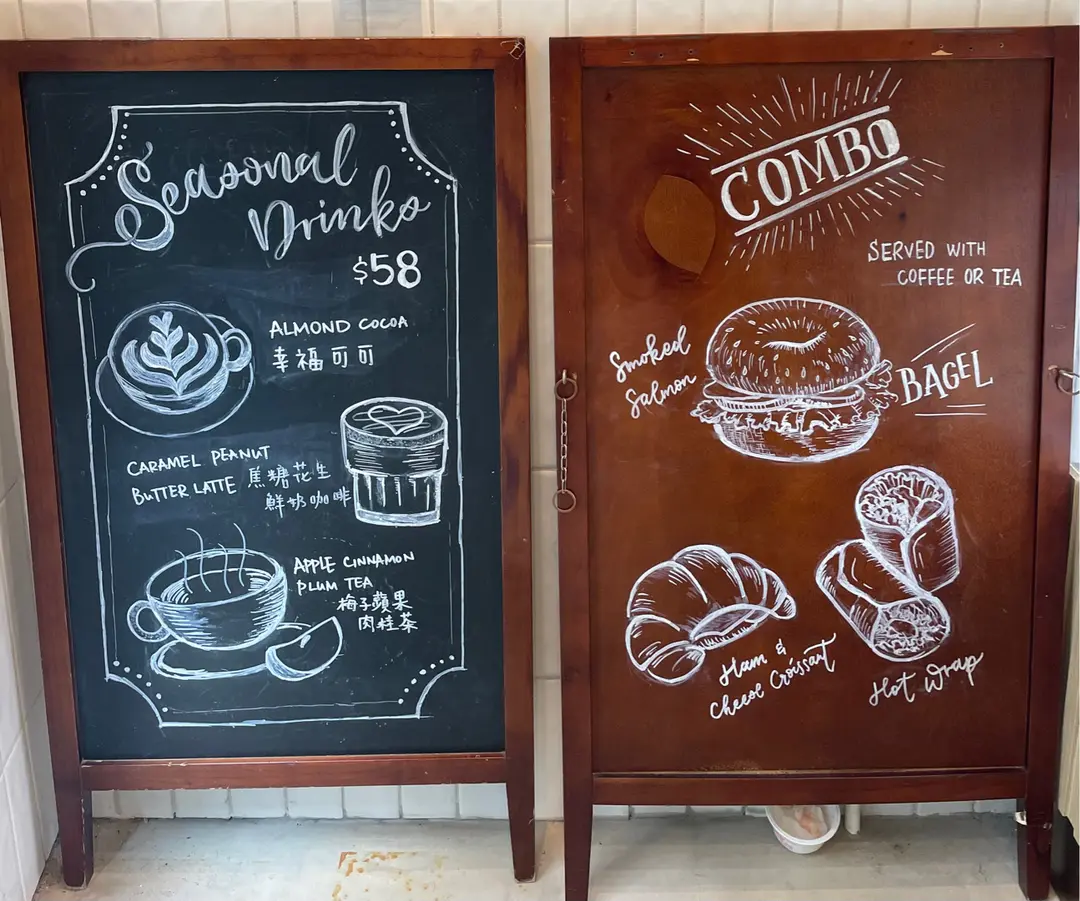 Seasonal
Drinks
$58
ALMOND COCOA
幸福可可
CARAMEL PEANUT
BUTTER LATTE 蕉糖花生
鮮奶咖啡
APPLE CINNAMON
PLUM TEA
梅子蘋果
肉桂茶
COMBO
SERVED WITH
COFFEE OR TEA
Smoked
Salmon
BAGEL
Ham &
Cheese Croissant
Hot Wrap